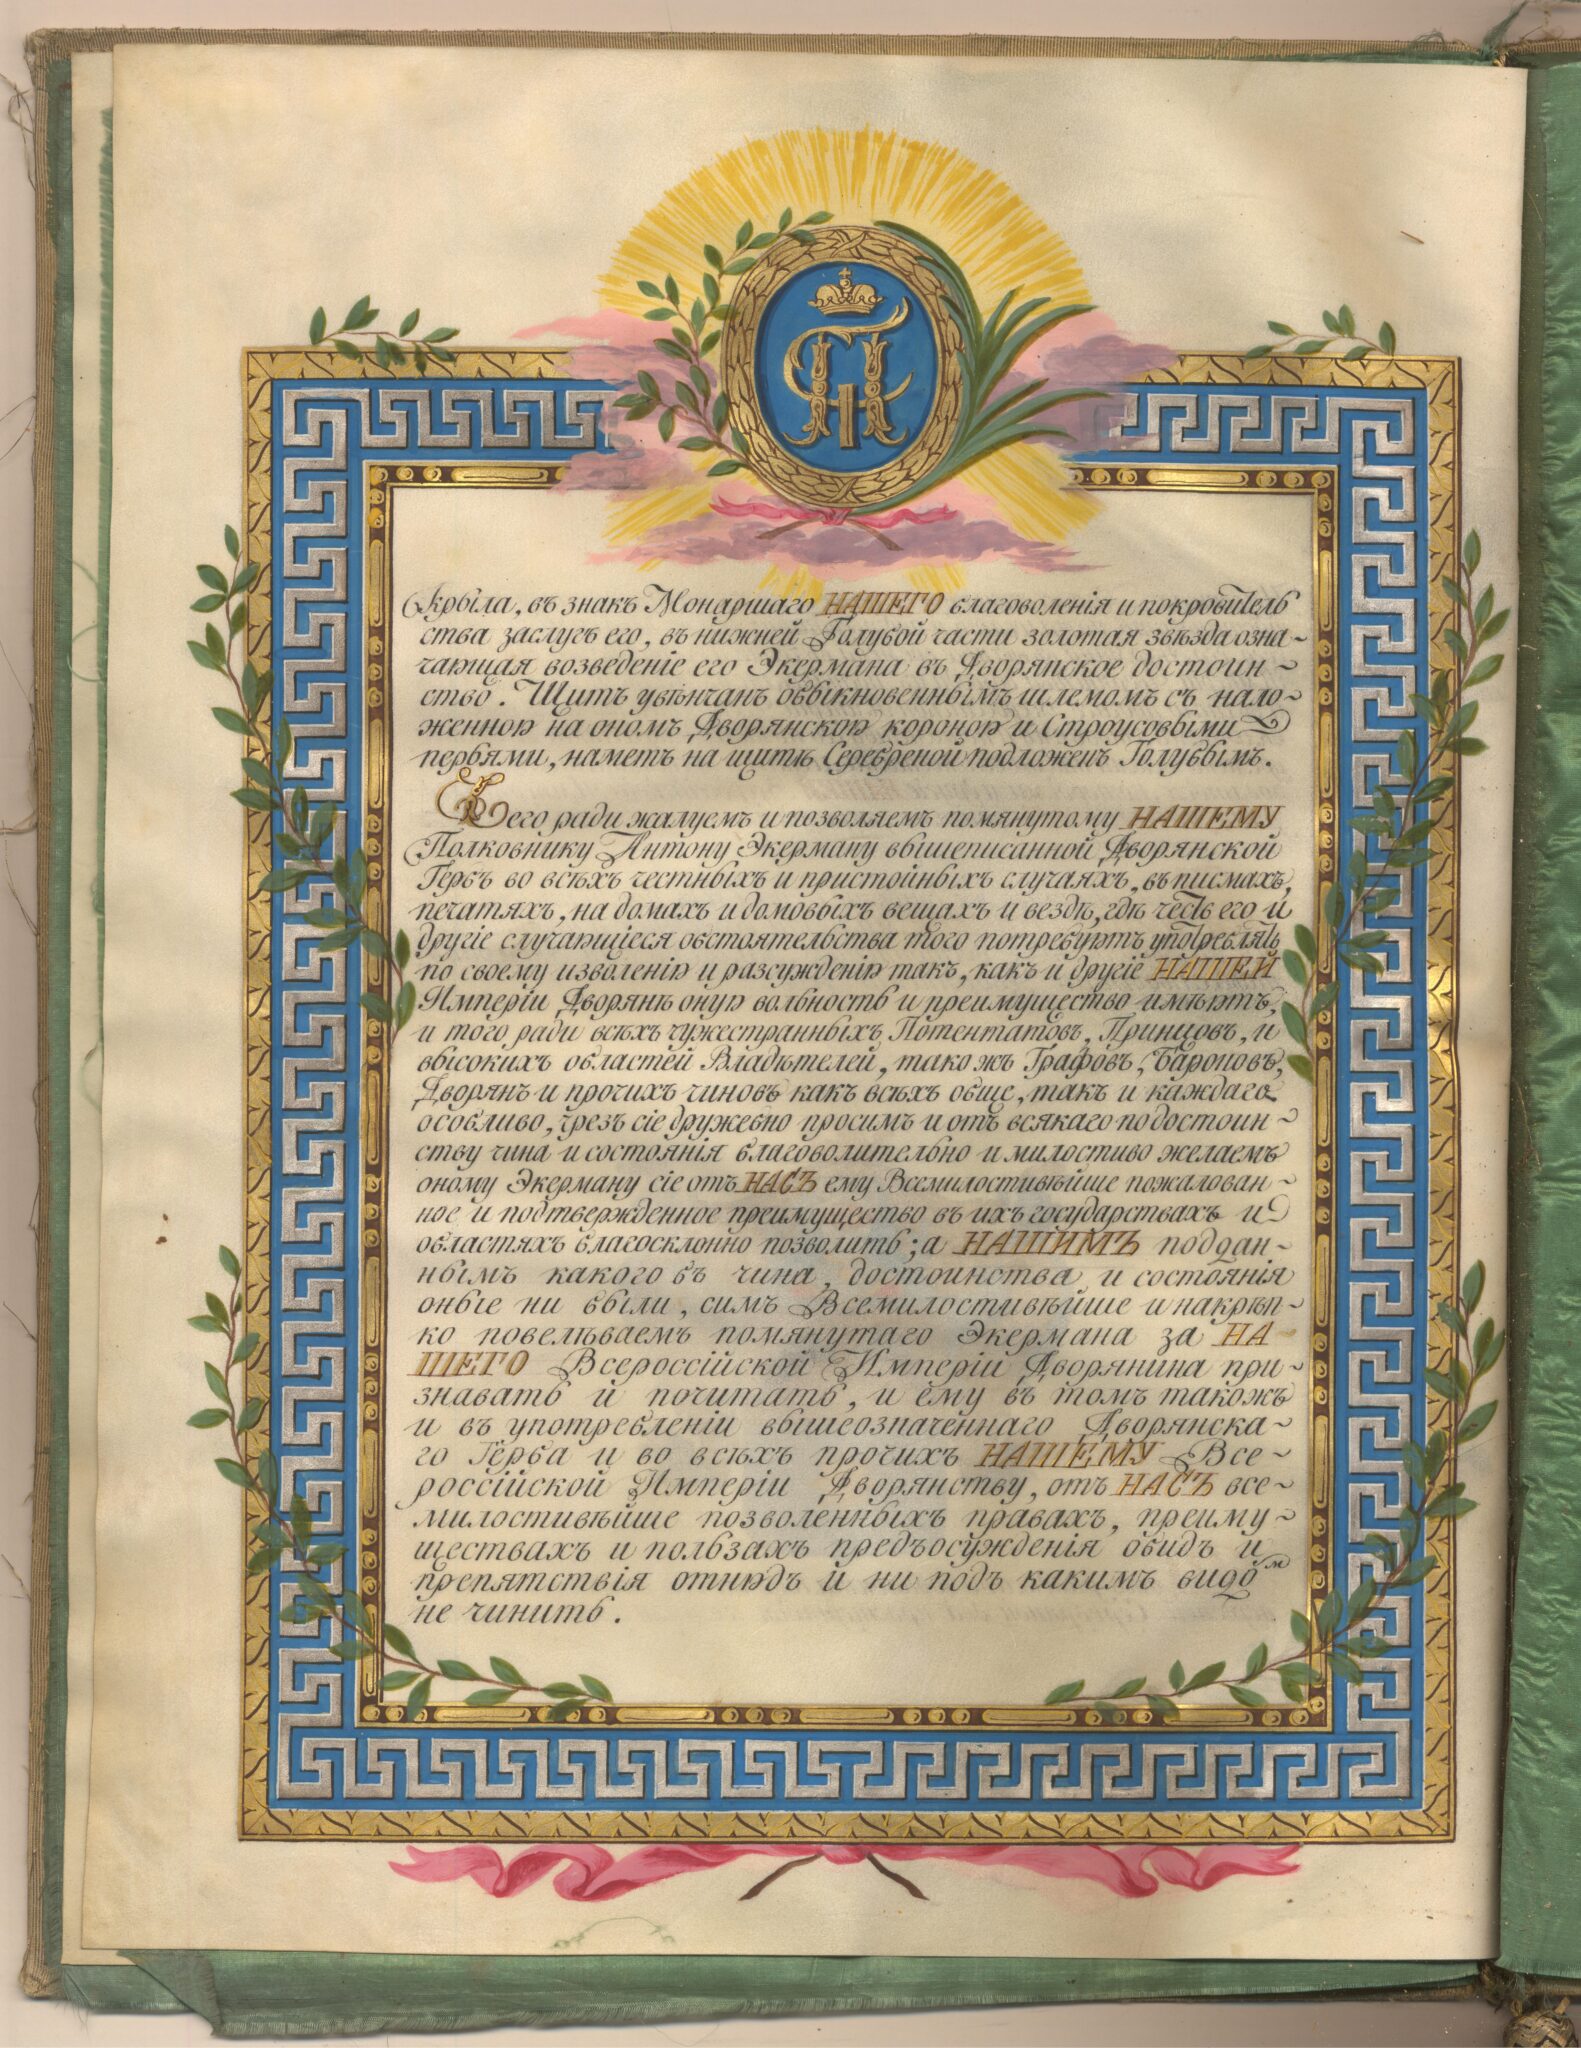 крыла, въ знакъ Монаршаго НАШЕГО благоволенія и покровитель
ства заслугъ его, въ нижней Голубой части золотая звѣзда озна-
чающая возведеніе его Экермана въ Дворянское достоин-
ство. Щитъ увѣнчанъ обыкновеннымъ шлемомъ съ нало-
женною на ономъ Дворянскою короною и Строусовыми
перьями, наметъ на щитѣ Серебреной подложенъ Голубымъ.
Сего ради жалуемъ и позволяемъ помянутому НАШЕМУ
Полковнику Антону Экерману вышеписанной Дворянской
Гербъ во всѣхъ честныхъ и пристойныхъ случаяхъ, въ писмахъ,
печатяхъ, на домахъ и домовыхъ вещахъ и вездѣ, гдѣ честь его и
другіе случающіеся обстоятельства того потребуютъ употреблять
по своему изволенію и разсужденію такъ, какъ и другіе НАШЕЙ
Имперіи Дворянѣ оную вольность и преимущество имѣютъ,
и того ради всѣхъ чужестранныхъ Потентатовъ, Принцовъ, и
высокихъ областей Владѣтелей, тако жъ Графовъ, Бароновъ,
Дворянъ и прочихъ чиновъ какъ всѣхъ обще, такъ и каждаго
особливо, чрезъ сіе дружебно просимъ и отъ всякаго по достоин-
ству чина и состоянія благоволительно и милостиво желаемъ
оному Экерману сіе отъ НАСЪ ему Всемилостивѣйше пожалован-
ное и подтвержденное преимущество въ ихъ государствахъ и
областяхъ благосклонно позволить; а НАШИМЪ поддан-
нымъ какого бъ чина, достоинства и состоянія
оные ни были, симъ Всемилостивѣйше и накрѣп-
ко повелѣваемъ помянутаго Экермана за НА-
ШЕГО Всероссійской Имперіи Дворянина при-
знавать и почитать, и ему въ томъ такожъ
и въ употребленіи вышеозначеннаго Дворянска-
го Герба и во всѣхъ прочихъ НАШЕМУ Все-
россійской Имперіи Дворянству, отъ НАСЪ все-
милостивѣйше позволенныхъ правахъ, преиму-
ществахъ и пользахъ предъосужденія обидъ и
препятствія отнюдъ и ни подъ какимъ видом
не чинить.